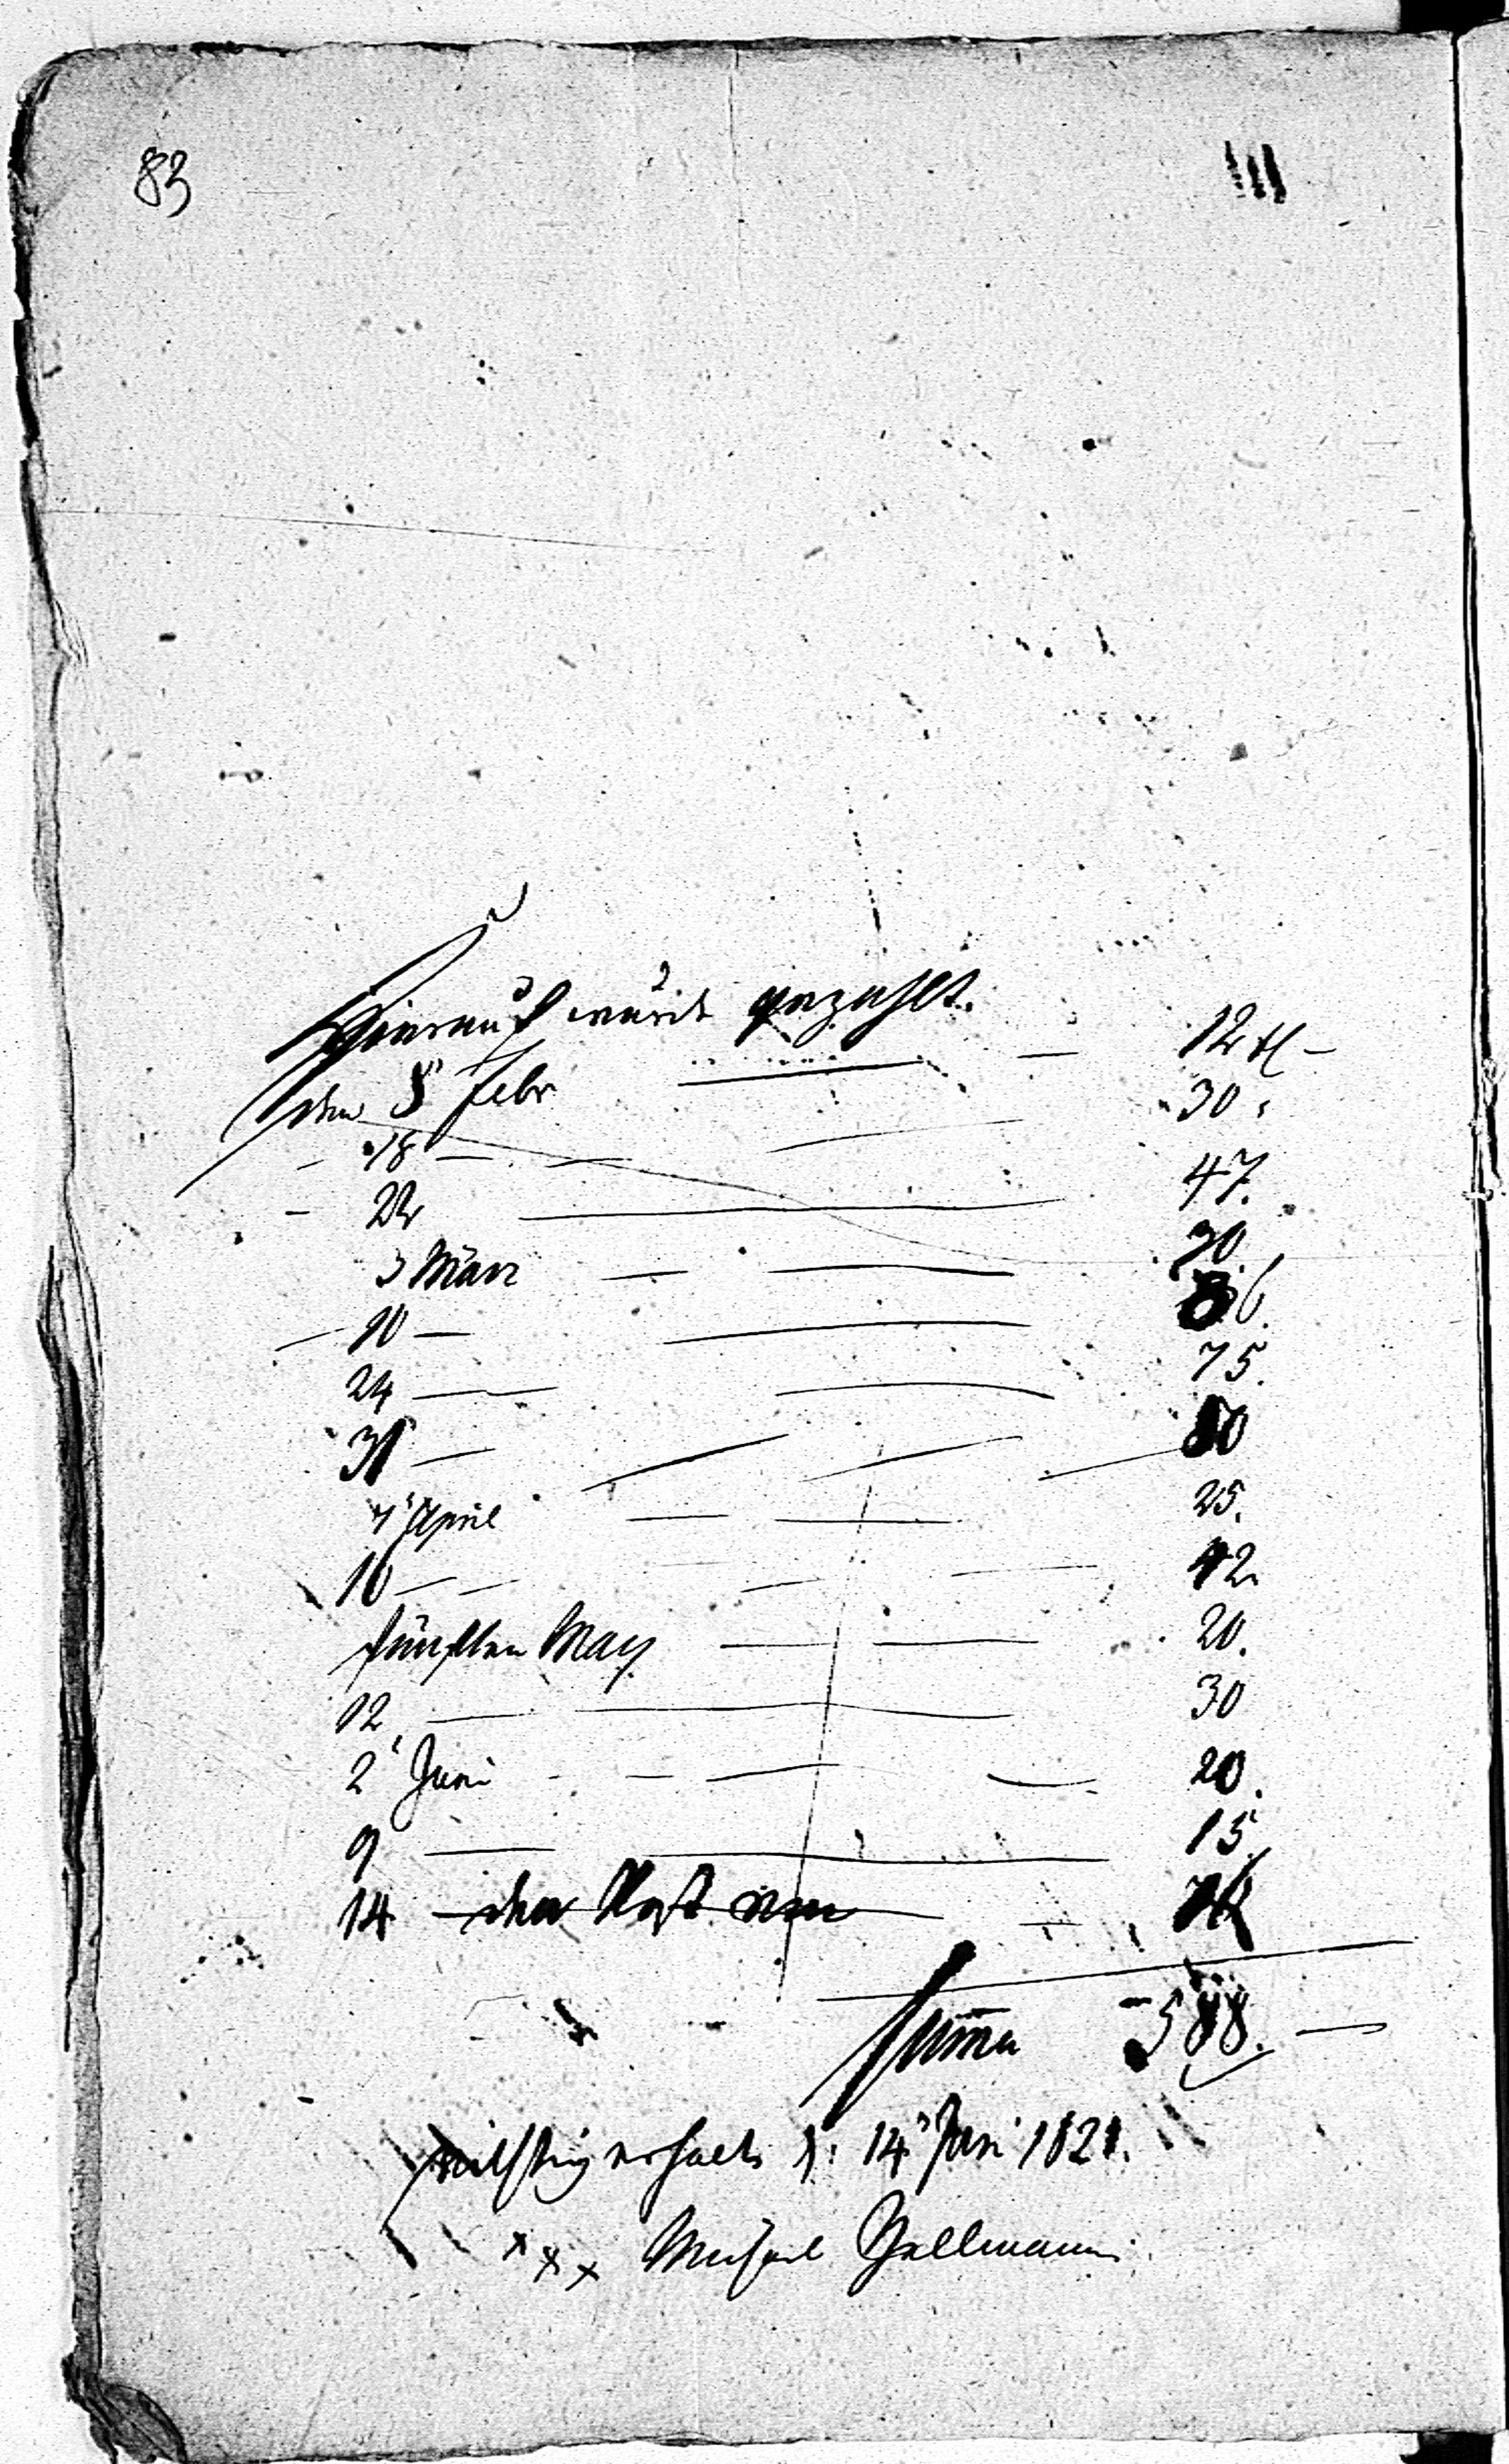 83
III
Hierauf wurde gezahlt.
12 fl —
den 8 Febr — 30 "
— 18 — — 47.
— 22 — 70.
3 März — — 36.
— 10 — — 75.
24 — — 50
31 — — —
7' April — — 25.
16 — — — — 42.
fünften May — — 20.
12. — — 30
2' Juni - — — — 20.
9 — — 15.
14 — den Rest mit — —
Summa 588. —
richtig erhalten d: 14' Juni 1821.
xxx Michael Hallmann